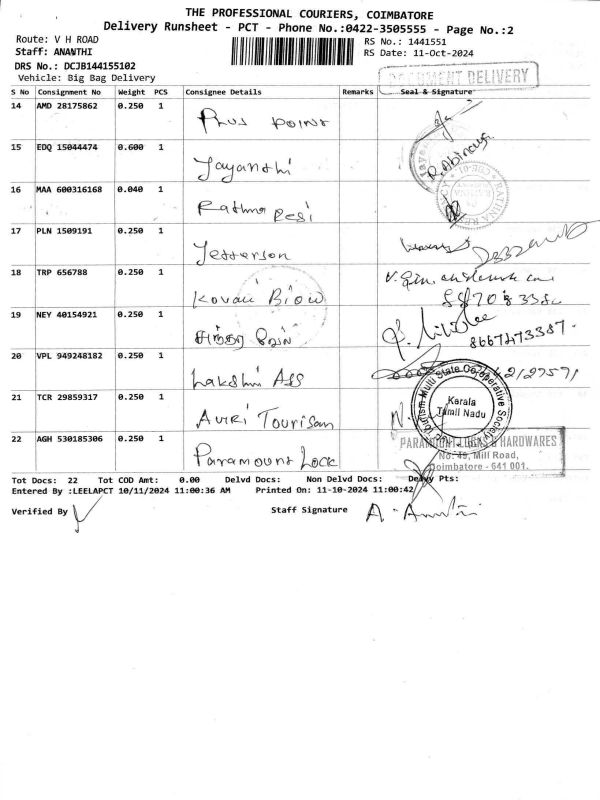 THE PROFESSIONAL COURIERS, COIMBATORE
Delivery Runsheet - PCT - Phone No.:0422-3505555 - Page No.:2
Route: V H ROAD RS No.: 1441551
Staff: ANANTHI RS Date: 11-Oct-2024
DRS No.: DCJB144155102
Vehicle: Big Bag Delivery DOCUMENT DELIVERY
S No Consignment No Weight PCS Consignee Details Remarks Seal & Signature
14 AMD 28175862 0.250 1 Plus Point
15 EDQ 15044474 0.600 1 Jayanthi R. Abinaya
16 MAA 600316168 0.040 1 Rathna Resi
17 PLN 1509191 0.250 1 Jefferson
18 TRP 656788 0.250 1 Kovai Biow
19 NEY 40154921 0.250 1 சுந்தர வேல் 8667473387
20 VPL 949248182 0.250 1 Lakshmi Ass
21 TCR 29859317 0.250 1 Auri Tourisam Multi State Co-operative Society Kerala Tamil Nadu
22 AGH 530185306 0.250 1 Paramount Lock PARAMOUNT LOCKS & HARDWARES
No: 49, Mill Road,
Coimbatore - 641 001.
Tot Docs: 22 Tot COD Amt: 0.00 Delvd Docs: Non Delvd Docs: Delvy Pts:
Entered By :LEELAPCT 10/11/2024 11:00:36 AM Printed On: 11-10-2024 11:00:42
Verified By Staff Signature A. Ananthi